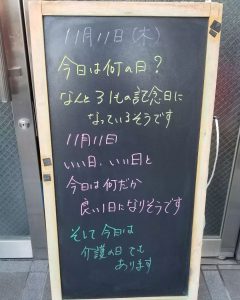 11月11日(木)
今日は何の日?
なんと31もの記念日に
なっているそうです
11月11日
いい日、いい日と
今日は何だか
良い1日になりそうです
そして今日は
介護の日でも
あります